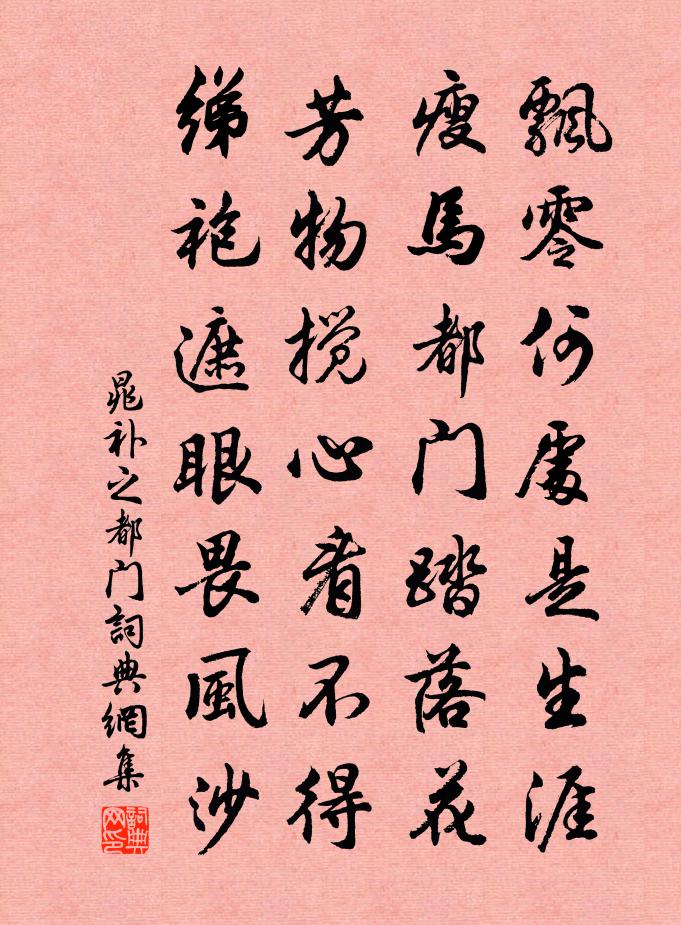 飄零何處是生涯
瘦馬都门踏落花
芳物搅心看不得
绨袍遮眼畏風沙
晁补之都门詞典網集
詞典网印